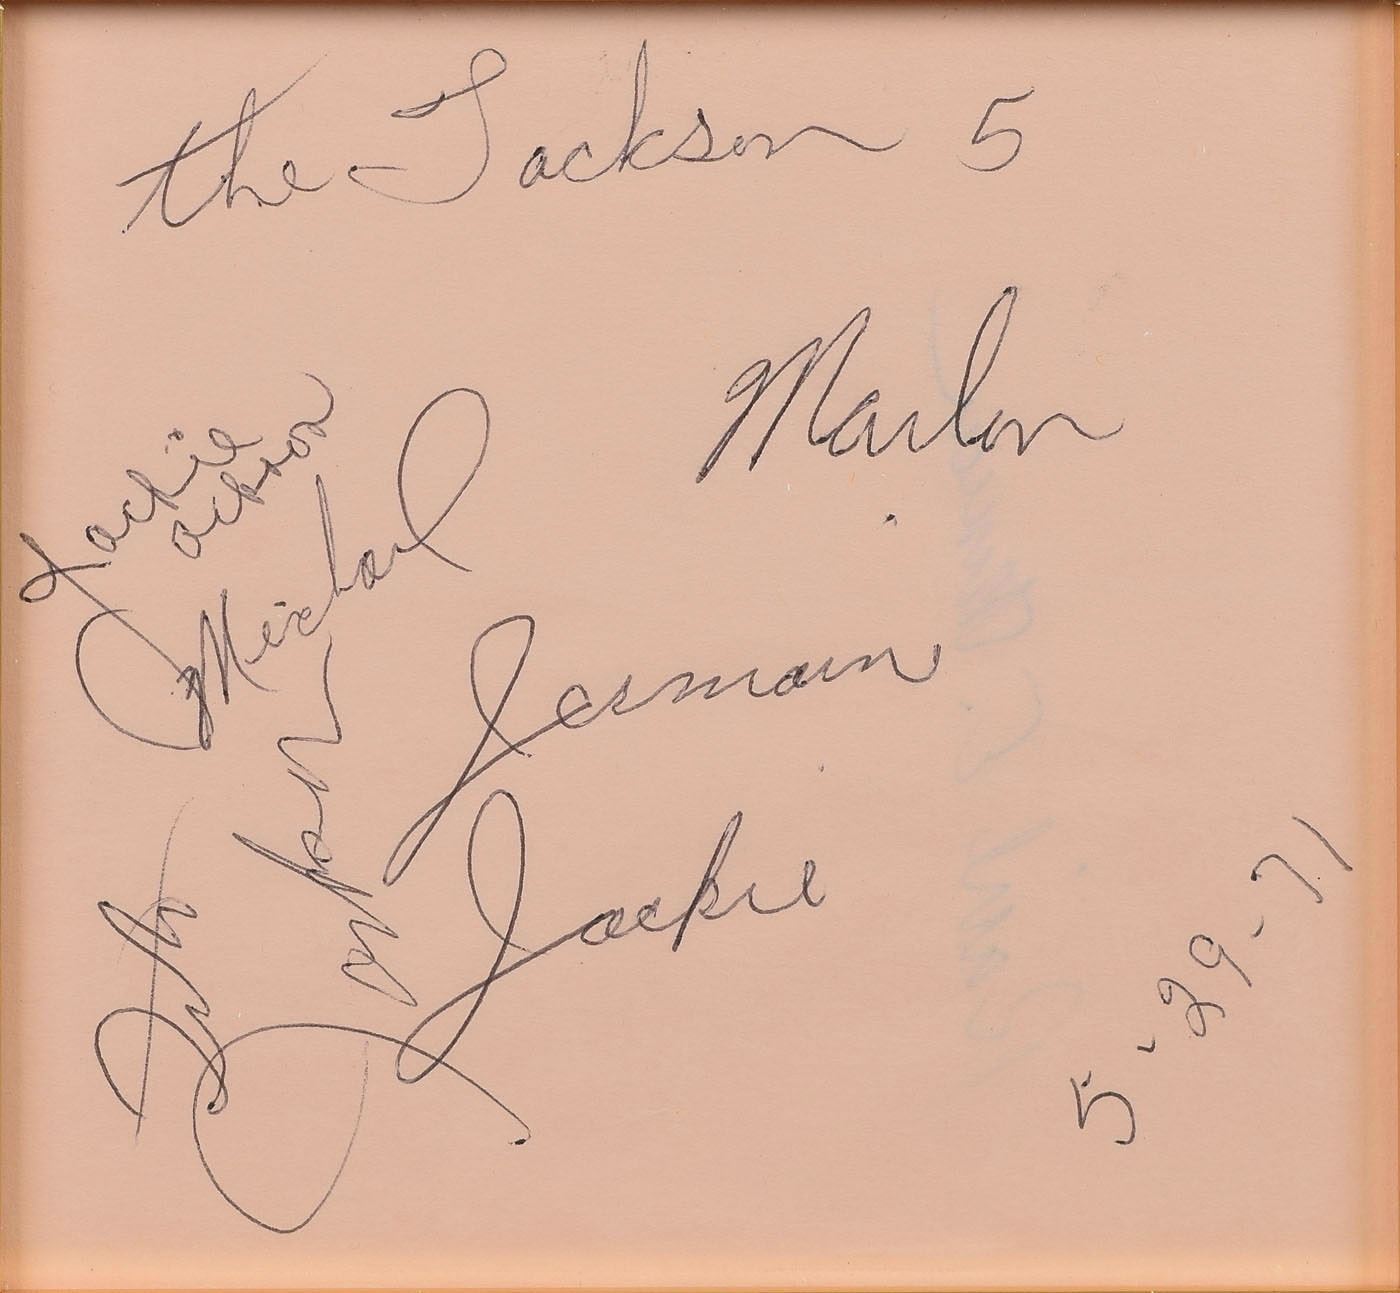 the Jackson 5
Marlon
Jackie
Jackson
Michael
Jermain
Tito
Jackson
Jackie
5-29-71